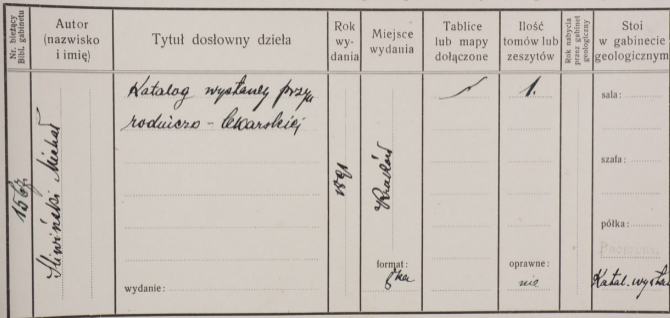 Nr. bieżący
Bibl. gabinetu
Autor
(nazwisko
i imię)
Tytuł dosłowny dzieła
Rok
wy-
dania
Miejsce
wydania
Tablice
lub mapy
dołączone
Ilość
tomów lub
zeszytów
Rok nabycia
przez gabinet
geologiczny
Stoi
w gabinecie
geologicznym
Śliwiński Michał
Katalog wystawy przy
rodniczo - lekarskiej
1891
Kraków
1.
sala:
szafa:
półka:
format:
8ka
oprawne:
nie
Katal. wystaw
wydanie: